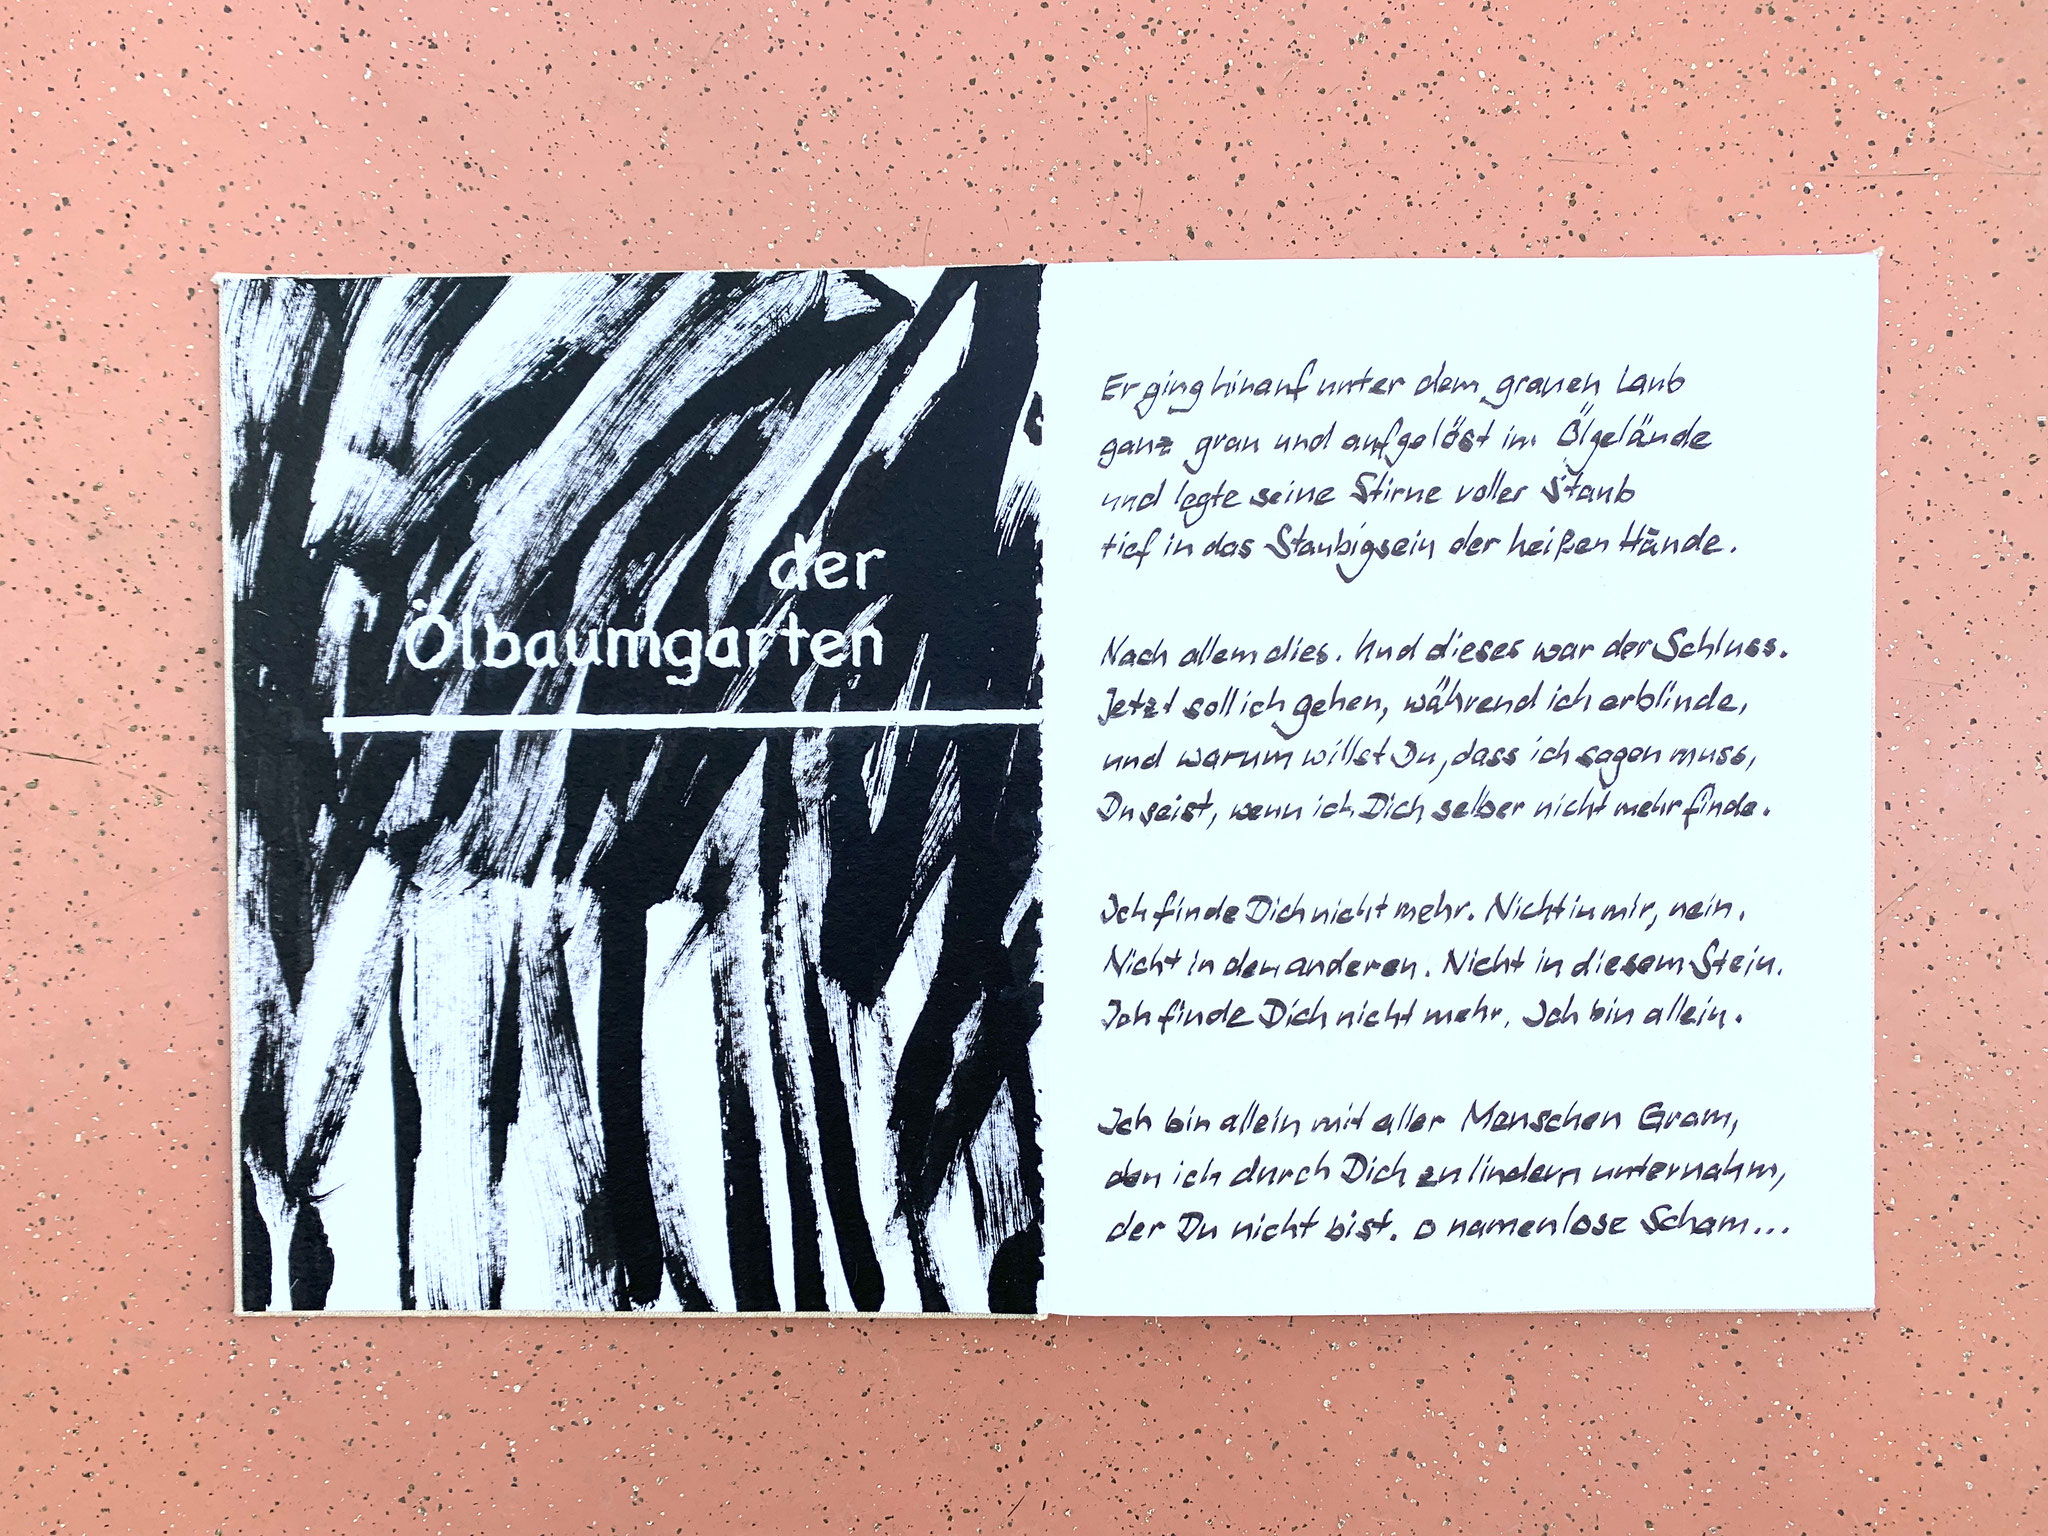 der
Ölbaumgarten
Er ging hinauf unter dem grauen Laub
ganz grau und aufgelöst im Ölgelände
und legte seine Stirne voller Staub
tief in das Staubigsein der heißen Hände.
Nach allem dies. Und dieses war der Schluss.
Jetzt soll ich gehen, während ich erblinde,
und warum willst Du, dass ich sagen muss,
Du seist, wenn ich Dich selber nicht mehr finde.
Ich finde Dich nicht mehr. Nicht in mir, nein.
Nicht in den anderen. Nicht in diesem Stein.
Ich finde Dich nicht mehr. Ich bin allein.
Ich bin allein mit aller Menschen Gram,
den ich durch Dich zu lindern unternahm,
der Du nicht bist. o namenlose Scham...